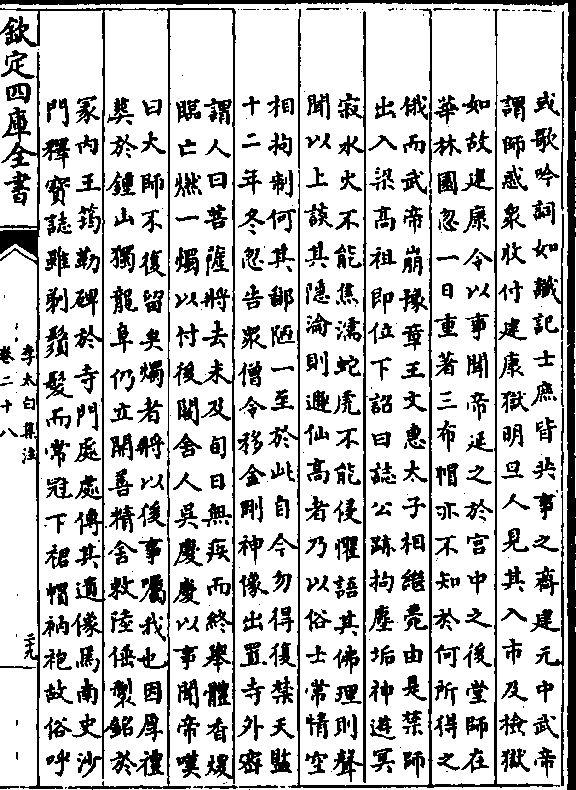 或歌吟詞如讖記士庶皆共事之齊建元中武帝
謂師惑衆收付建康獄明旦人見其入市及檢獄
如故建康令以事聞帝延之於宮中之後堂師在
華林園忽一日重著三布帽亦不知於何所得之
俄而武帝崩豫章王文惠太子相繼薨由是禁師
出入梁高祖即位下詔曰誌公跡拘塵垢神遊冥
寂水火不能焦濡蛇虎不能侵懼語其佛理則聲
聞以上談其隱淪則遯仙高者乃以俗士常情空
相拘制何其鄙陋一至於此自今勿得復禁天監
十二年冬忽告衆僧令移金剛神像出置寺外密
謂人曰菩薩將去未及旬日無疾而終舉體香煖
臨亡燃一燭以付後閣舍人吳慶慶以事聞帝嘆
曰大師不復留矣燭者將以後事囑我也因厚禮
葬於鍾山獨龍阜仍立開善精舍敕陸倕製銘於
冢内王筠勒碑於寺門處處傳其遺像焉南史沙
門釋寳誌雖剃鬚髮而常冠下裙帽衲袍故俗呼
欽定四庫全書
李太白集注
卷二十八
二九